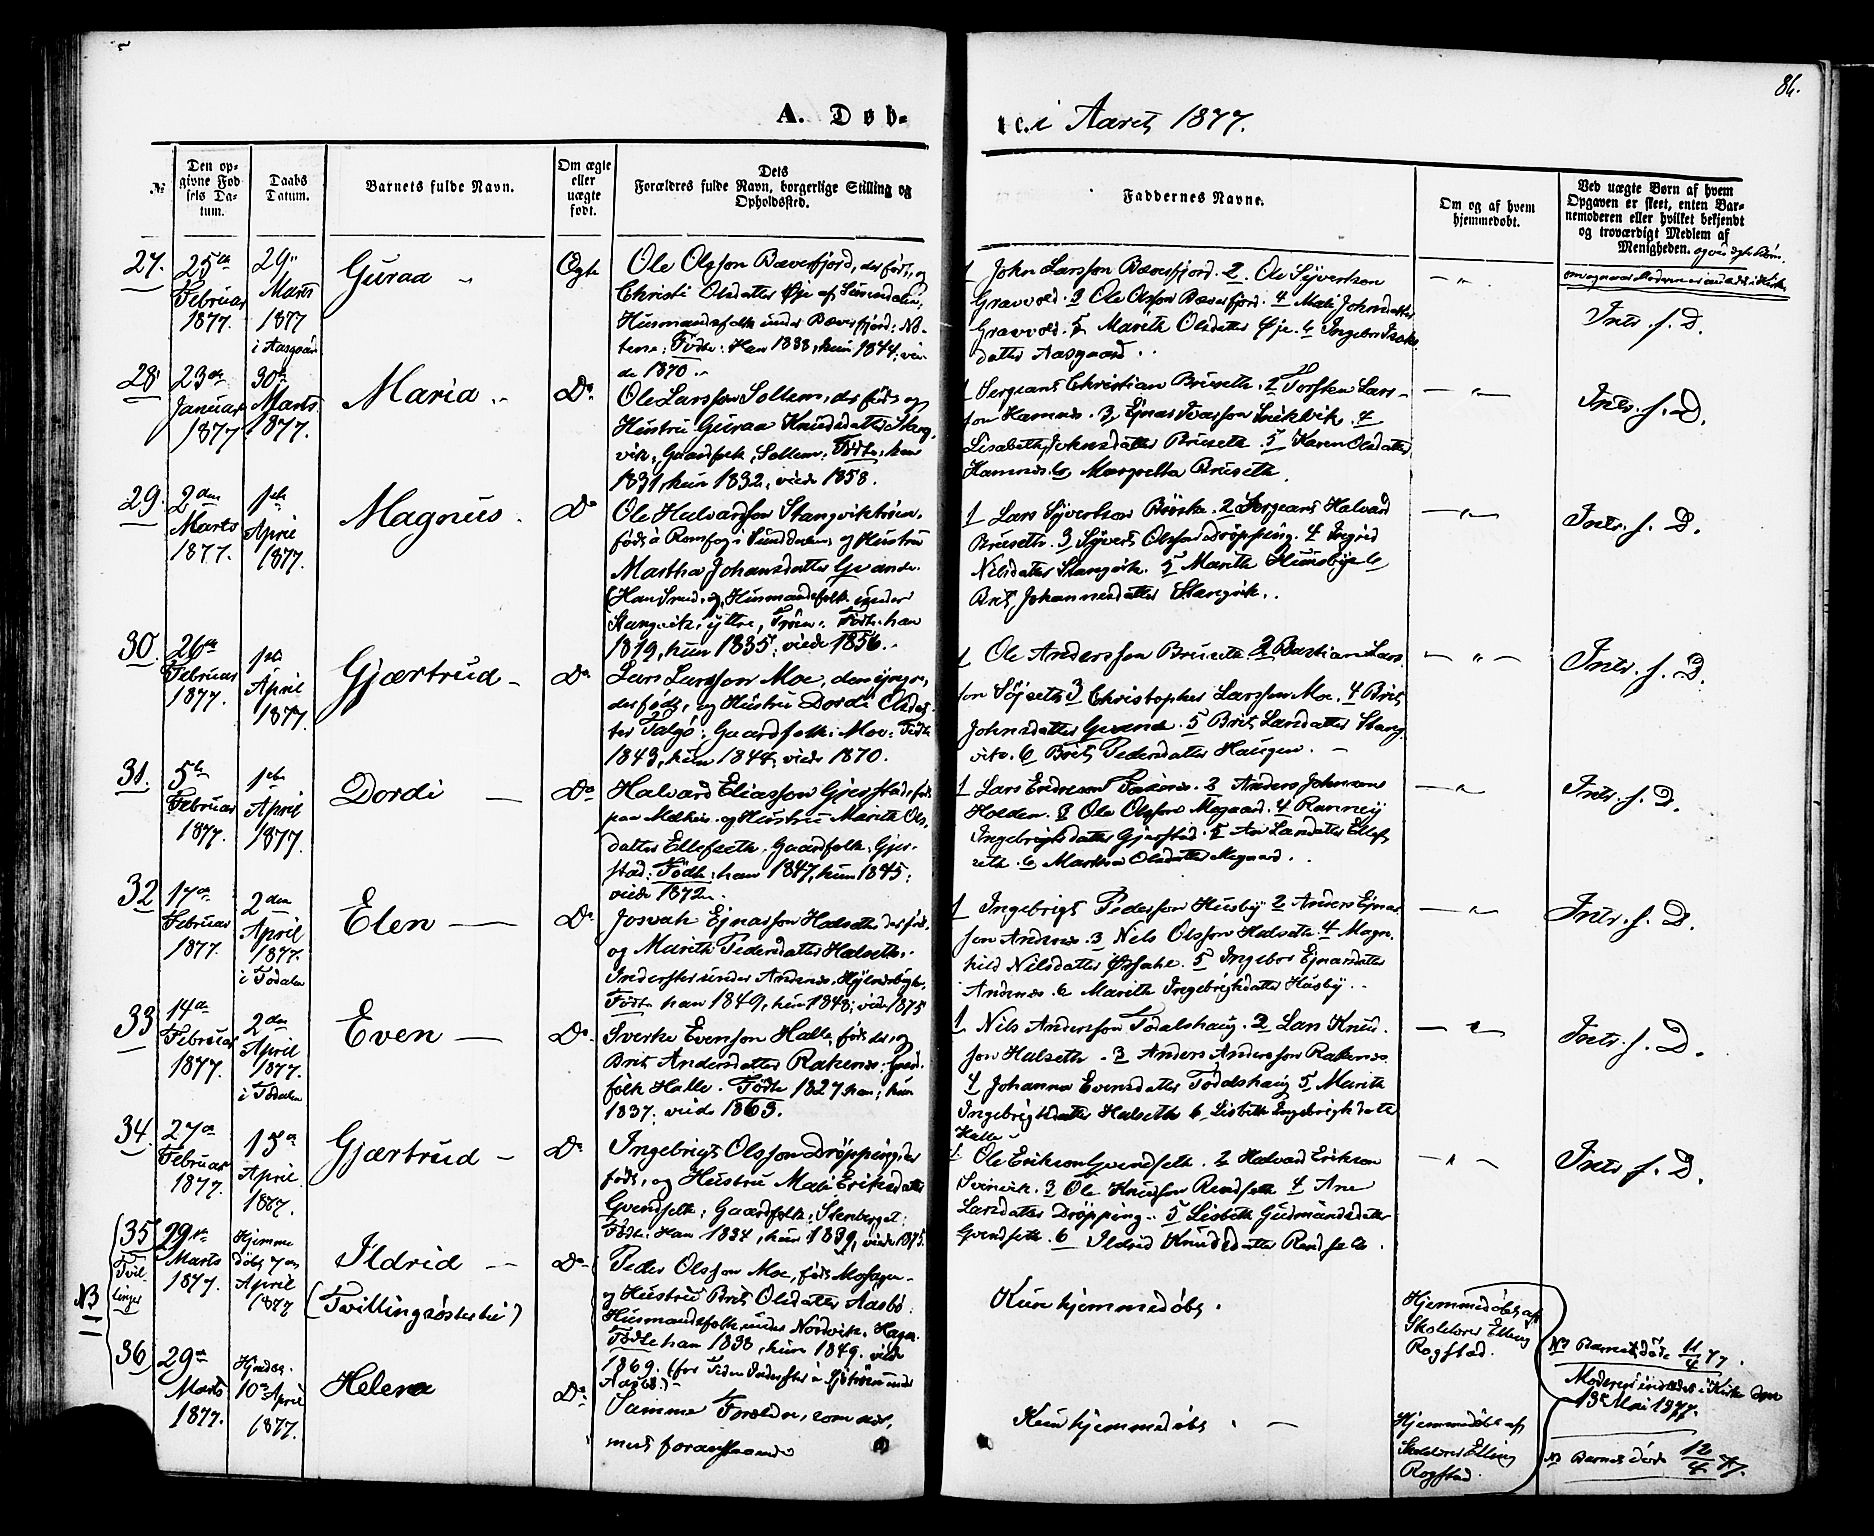 86.
A. Døb-
te. i Aaret 1877.
№
Den op-
givne Fød
sels Da-
tum.
Daabs
Datum.
Barnets fulde Navn.
Om ægte
eller
uægte
født.
Dets
Forældres fulde Navn, borgerlige Stilling og
Opholdssted.
Faddernes Navne.
Om og af hvem
hjemmedøbt.
Ved uægte Børn af hvem
Opgaven er skeet, enten Bar-
nemoderen eller hvilket bekjendt
og troværdigt Medlem af
Menigheden.
27.
25de
Februar
1877.
29
Marts
1877
i Aasgaar
Guraa
Ægte
Ole Olsson Bæverfjord, der født, og
Christi Olsdatter Øje af Surendalen,
Husmandsfolk under Bæverfjord:
Fødte: Han 1838, hun 1844, vie-
de 1870.
1 John Larsson Bæverfjord. 2. Ole Syvertson
Gravvold. 3 Ole Olsson Bæverfjord. 4 Mali Johnsdatter
Gravvold. 5 Marith Olsdatter Øje. 6 Ingebor
datter Aasgaard.
Intr. f. D.
28
23de
Januar
1877
30te
Marts
1877.
Maria
Do
Ole Larsson Sollem, der født og
Hustru Guraa Knudsdatter Stang-
vik, Gaardfolk, Sollem, Fødte, han
1831, hun 1832, viede 1858.
1 Sergeant Christian Bruseth. 2 Torsten Lars-
son Hamnes. 3, Ejnar Ivarsson 4
Lisabeth Johnsdatter Bruseth. 5 Karen Olsdatter
Hamnes. 6 Margretha Bruseth.
Intr. f. D.
29.
2den
Marts
1877.
1ste
April
1877.
Magnus
Do
Ole Halvardson Stangviktrøen,
født i Sunddalen, og Hustru
Martha Johansdatter Qvande.
Husmandsfolk under
Stangvik, ytre, Trøen. Fødte han
1819, hun 1835, viede 1856.
1 Lars Syvertson 2 Sergeant Halvard
Bruseth. 3 Syvert Olsson Drøpping. 4 Ingrid
Nilsdatter Stangvik. 5 Marith Husby 6
Brit Johannesdatter Stangvik.
Intr. f. D.
30.
26de
Februar
1877.
1ste
April
1877.
Gjærtrud
Do
Lars Larsson Moe, den yngre,
der født, og Hustru Dordi Olsdat-
ter Talgø: Gaardfolk: Moe: Fødte
1843, hun 1844, viede 1870.
1 Ole Andersson Bruseth. 2 Bastian Lars-
son Søjseth 3 Christopher Larsson Moe. 4 Brit
Johnsdatter Qvande. 5 Brit Larsdatter Stang-
vik. 6 Brit Pedersdatter Haugen.
Intr. f. D.
31.
5te
Februar
1877.
1ste
April
1877.
Dordi
Do
Halvard Eliasson Gjerstad, født
paa og Hustru Marith Ols-
datter Ellefseth. Gaardfolk: Gjer-
stad: Fødte: han 1847, hun 1845:
viede 1872.
1 Lars Endreson 2 Anders Johnson
Holden. 3 Ole Olsson Mogaard. 4 Rannej
Ingebrigtsdatter Gjerstad. 5 Ane Larsdatter Ellef-
seth. 6 Martha Olsdatter Mogaard.
Intr. f. D.
32
17de
Februar
1877.
2den
April
1877.
i Tødalen
Elen
Do
Josvah Ejnarsson Halseth der født,
og Marith Pedersdatter Halseth,
Inderster under Andenes,
Fødte han 1849, hun 1848, viede 1875
1 Ingebrigt Pederson Husby 2 Anders Ejnar-
son Andenes. 3 Nils Olsson Halseth. 4 Magn-
hild Nilsdatter 5 Ingebor Ejnarsdatter
Andenes. 6 Marith Ingebrigtsdatter Husby.
Intr. f. D.
33
14de
Februar
1877.
2den
April
1877.
i Tødalen
Even
Do
Sverke Evenson Halle, født der, og
Brit Andersdatter Rakenes: Gaard-
folk Halle. Fødte 1827 han, hun
1837. viede 1863.
1 Nils Andersson Tødalshaug. 2 Lars Knud-
son Halseth. 3 Anders Andersson Rakenes
4 Johanna Evensdatter Tødalshaug 5 Marith
Ingebrigtsdatter Halseth 6 Lisbeth Ingebrigtsdatter
Halle
Intr. f. D.
34.
27de
Februar
1877.
15de
April
1877.
Gjærtrud
Do
Ingebrigt Olsson Drøpping, der
født, og Hustru Mali Eriksdatter
Qvendseth, Gaardfolk, Stenberget:
Fødte: Han 1834, hun: 1839, viede 1875.
1 Ole Erikson Qvendseth. 2 Halvard Erikson
Svinvik. 3 Ole Knudson Rendseth 4 Ane
Larsdatter Drøpping. 5 Lisbeth Gudmundsdatter
Qvendseth. 6 Ildrid Knudsdatter Rendseth.
Intr. f. D.
NB
35
Tvil-
linger
29de
Marts
1877.
Hjemme
døbt 7de
April
1877
Ildrid
(Tvillingsøster til)
Do
Peder Olsson Moe, født
og Hustru Brit Olsdatter Aasbø:
Husmandsfolk under Nordvik, Hagen.
Fødte han 1838, hun 1849. viede
1869.
Kun hjemmedøbt.
Hjemmedøbt af
Skolelærer Elling
Rogstad.
NB Barnet døde 11/4 77.
Moderen indledet i Kirke den
13de Mai 1877.
36
29de
Marts
1877.
10de April
1877.
Helena
Do
Samme Forældre, som næst-
med foranstaaende
Kun hjemmedøbt
Hjemmedøbt af
Skolelærer Elling
Rogstad.
NB Barnet døde 12/4 77.